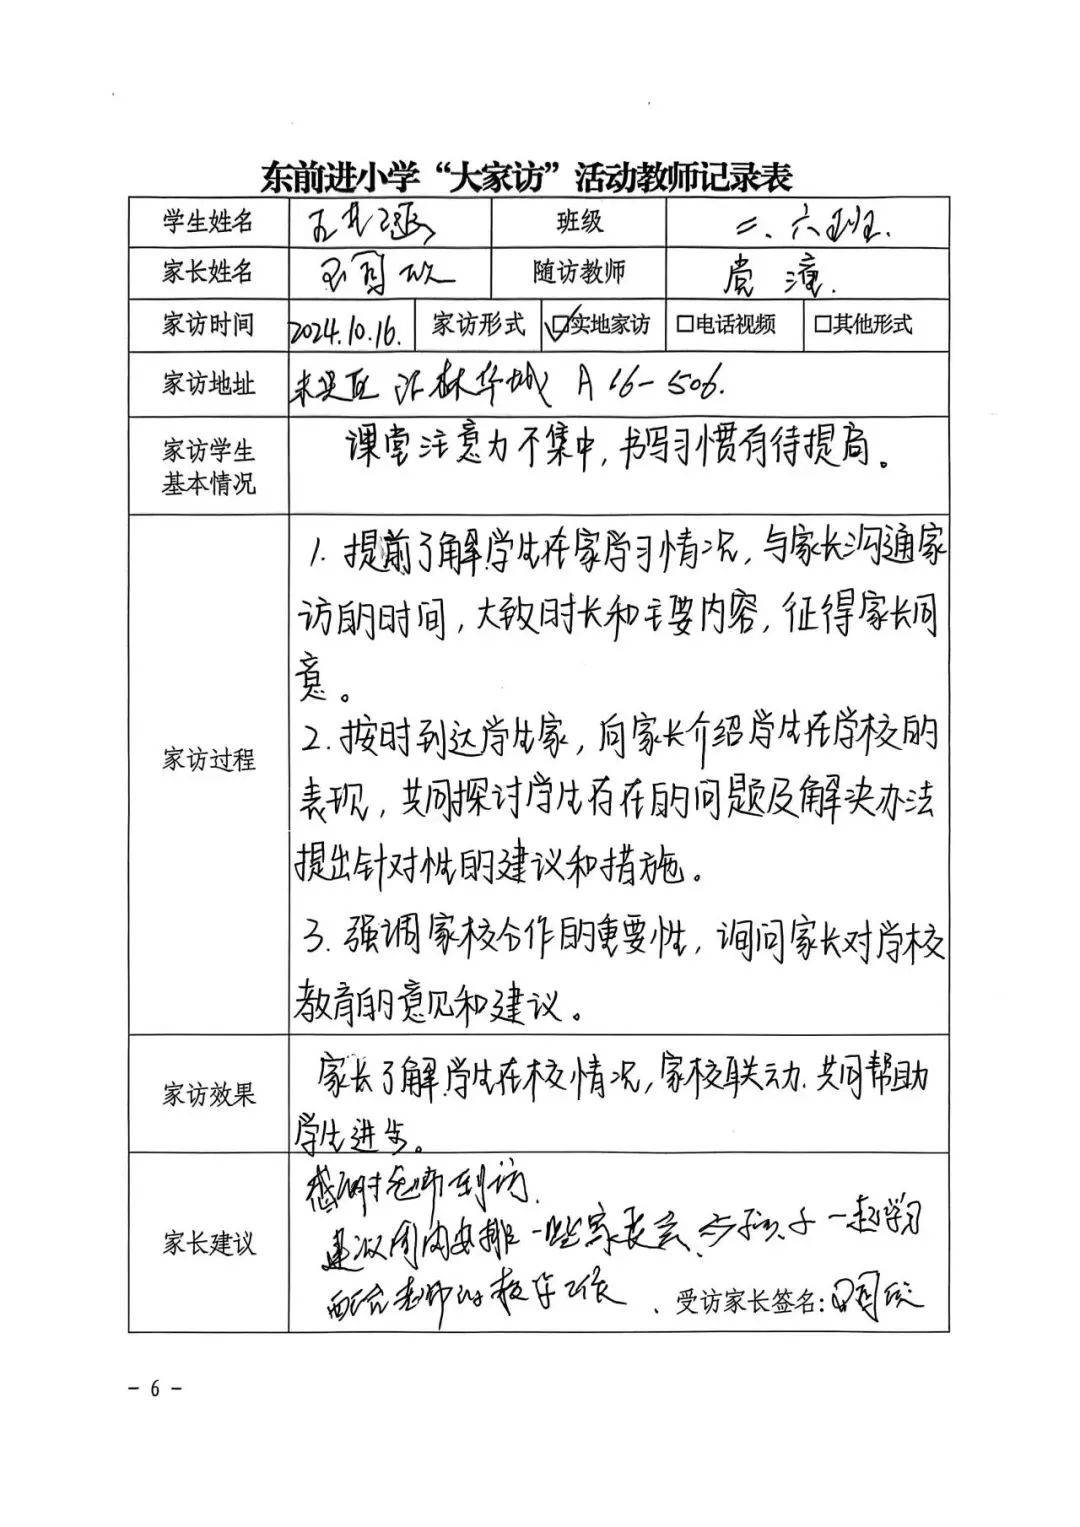 东前进小学“大家访”活动教师记录表
学生姓名 班级 二、六班.
家长姓名 随访教师 党
家访时间 2024.10.16. 家访形式 ☑实地家访 □电话视频 □其他形式
家访地址 未央区 林华城 A 16-506.
家访学生 课堂注意力不集中,书写习惯有待提高。
基本情况
家访过程
1. 提前了解学生在家学习情况,与家长沟通家
访的时间,大致时长和主要内容,征得家长同
意。
2.按时到达学生家,向家长介绍学生在学校的
表现,共同探讨学生存在的问题及解决办法
提出针对性的建议和措施。
3.强调家校合作的重要性,询问家长对学校
教育的意见和建议。
家访效果
家长了解学生在校情况,家校联动.共同帮助
学生进步。
家长建议
感谢老师到访.
建议周内安排一些家长会、与孩子一起学习
配合老师的教学工作 . 受访家长签名:
- 6 -